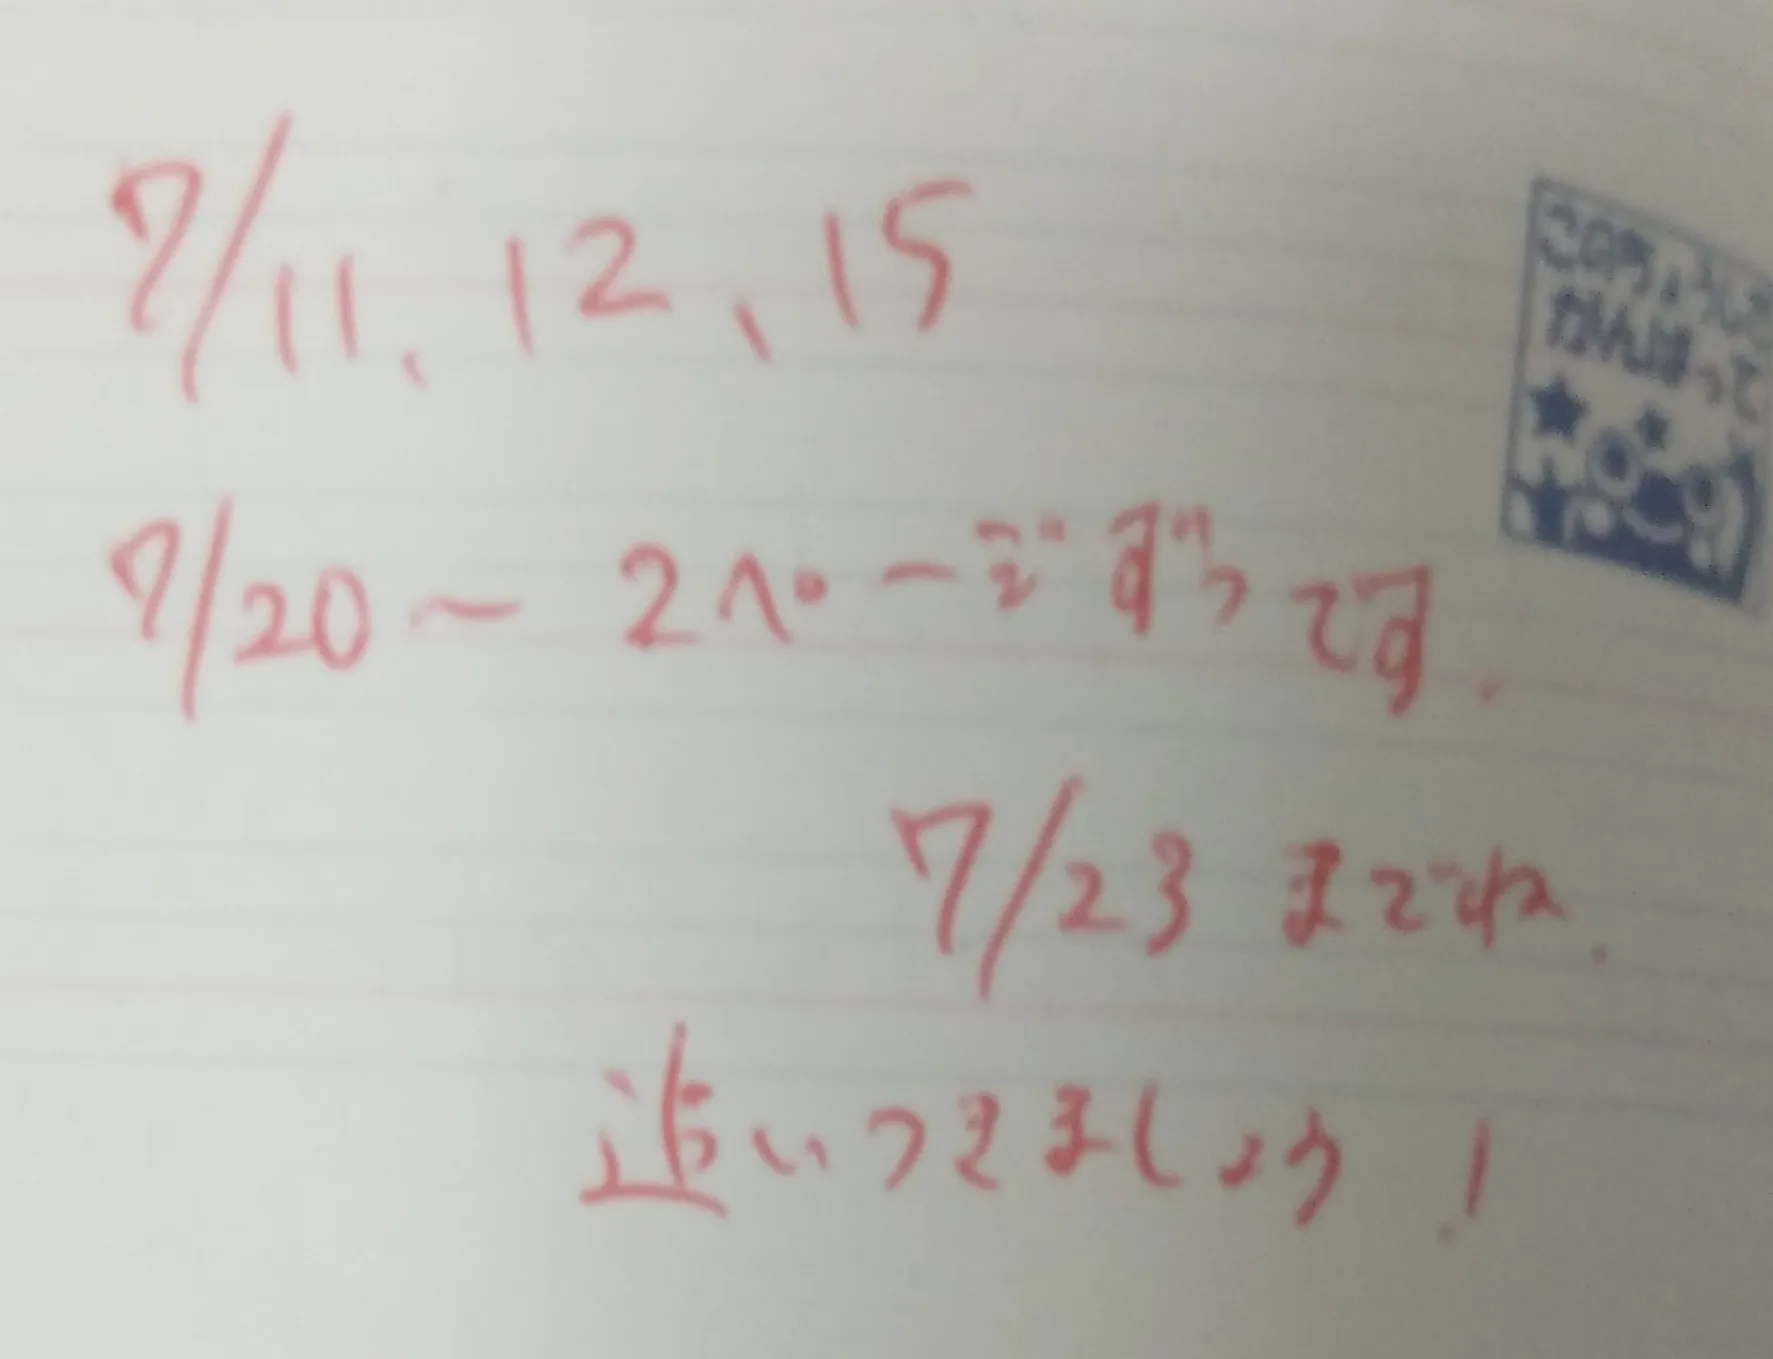 7/11、12、15
7/20〜 2ページずつです.
7/23 までね.
追いつきましょう!
このちょうしで
がんばって